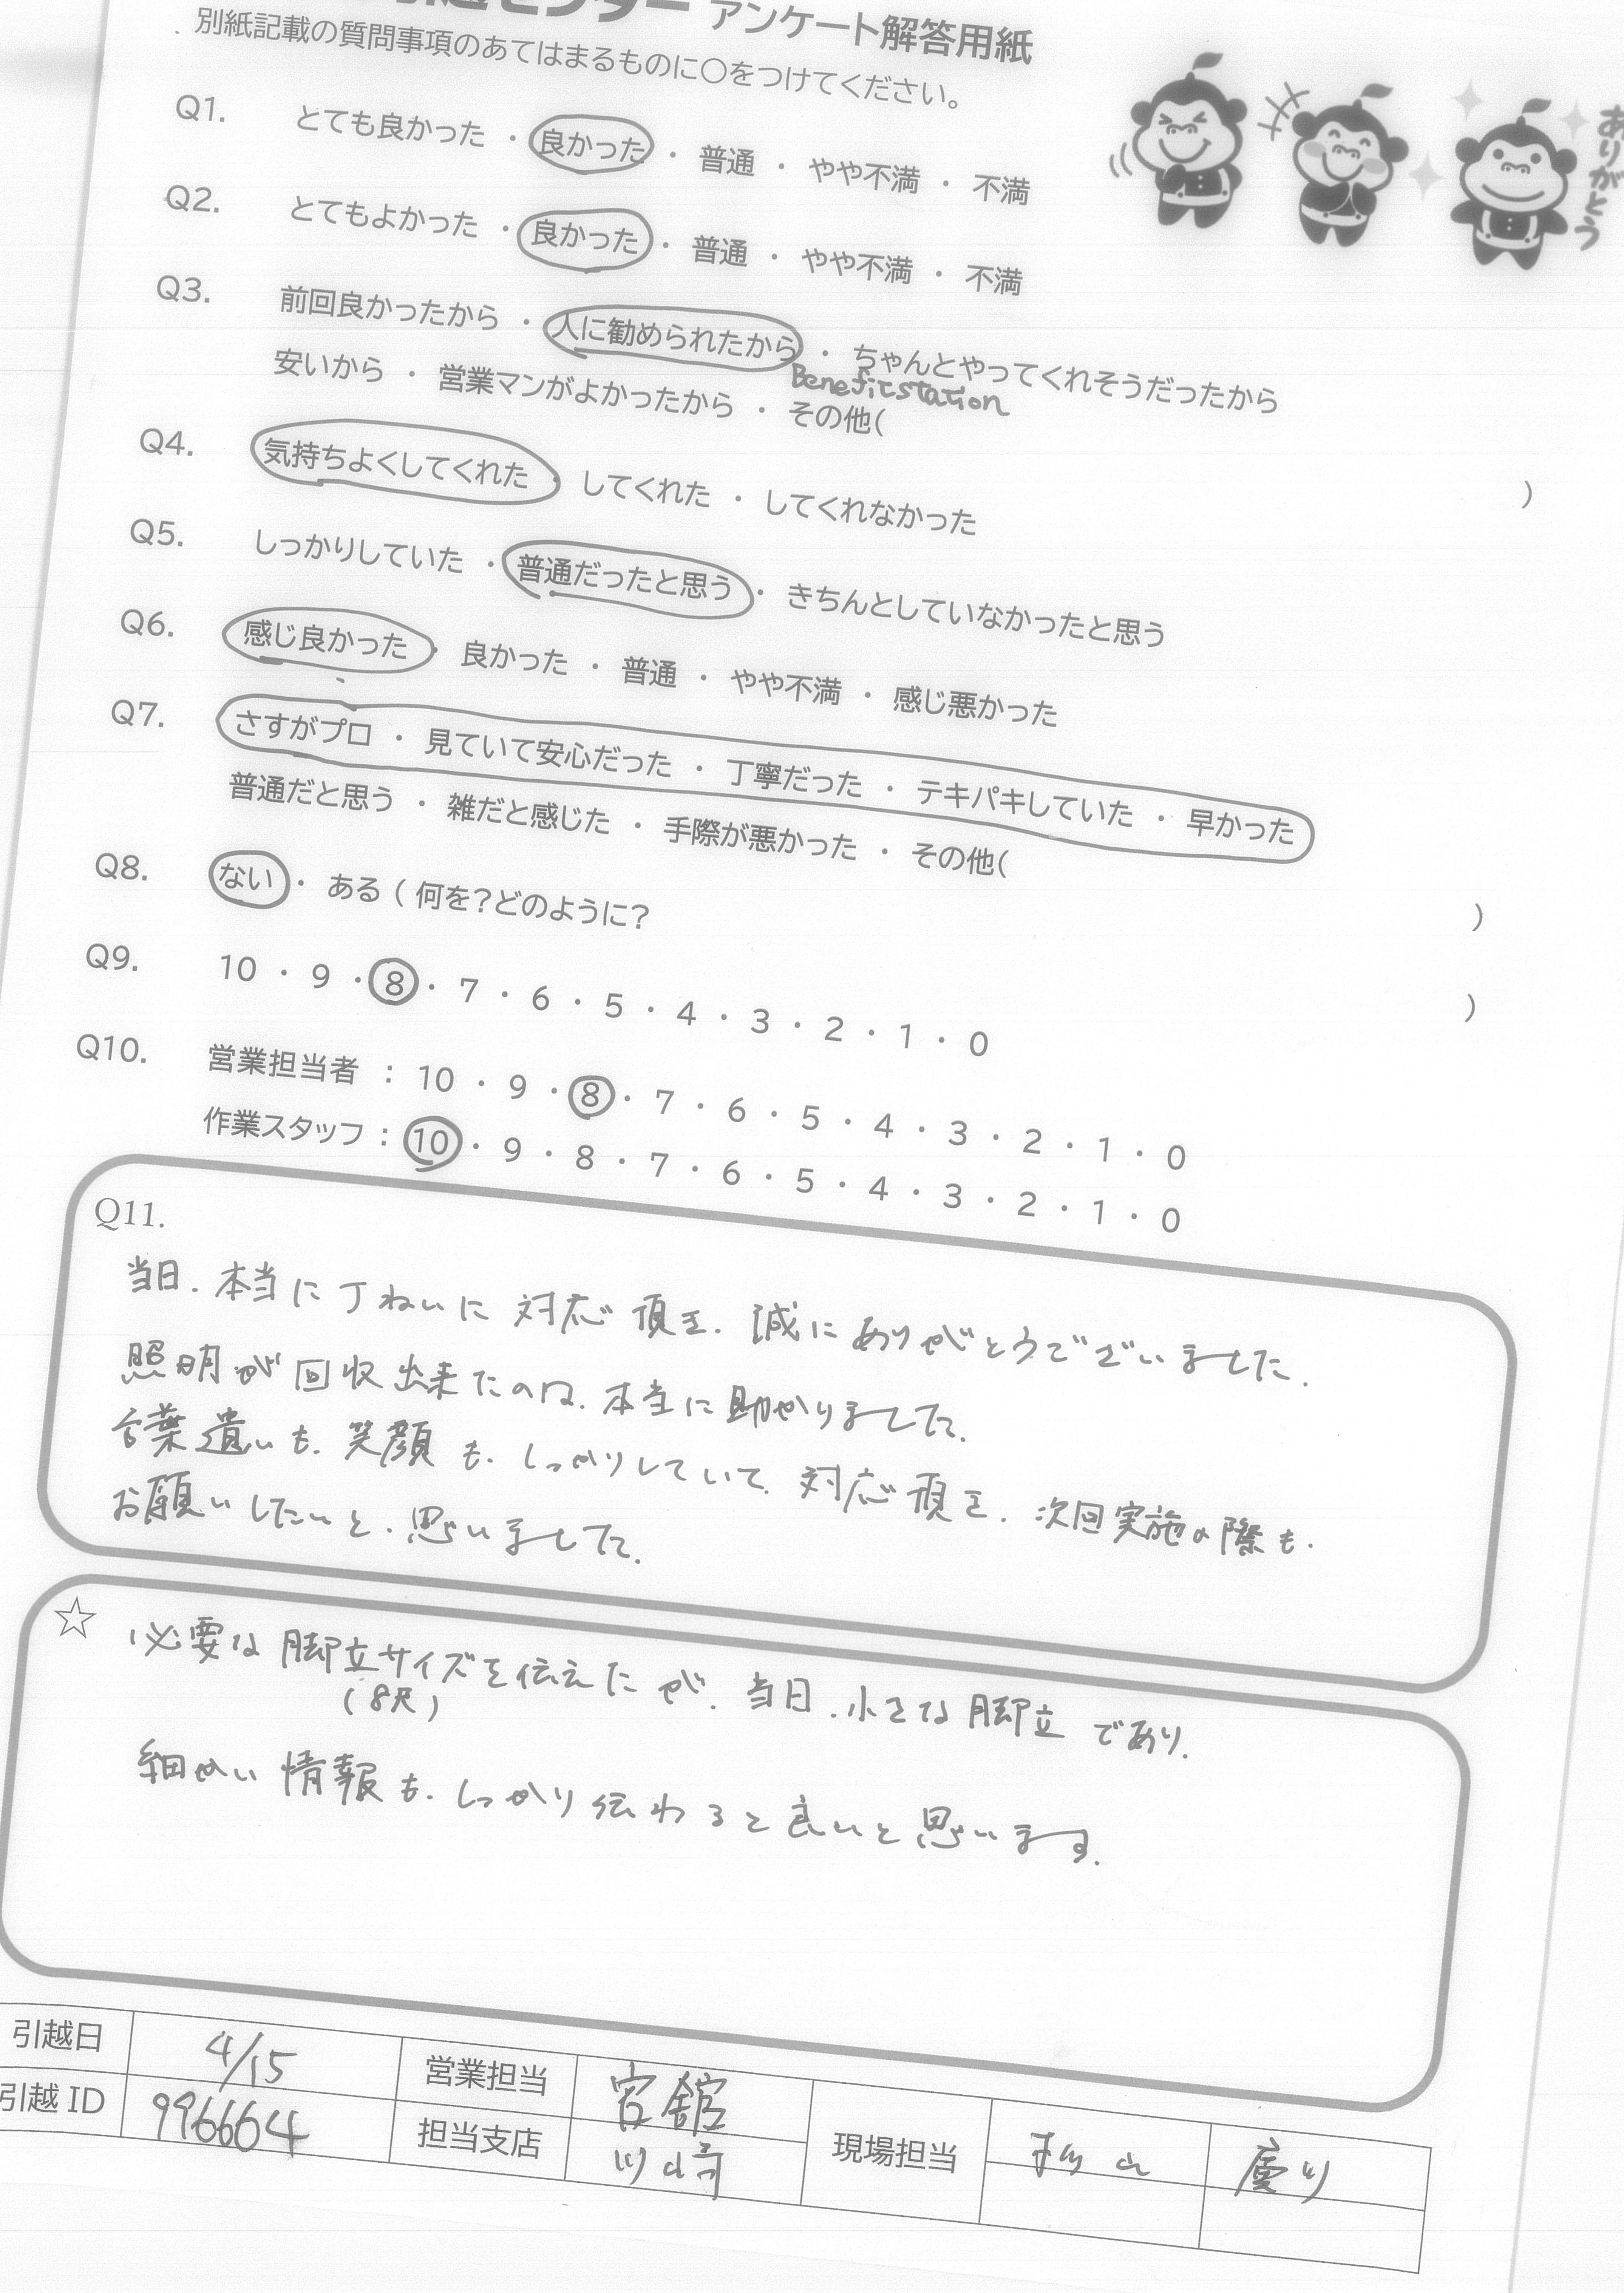 アンケート解答用紙
別紙記載の質問事項のあてはまるものに○をつけてください。
ありがとう
Q1. とても良かった ・ 良かった ・ 普通 ・ やや不満 ・ 不満
Q2. とてもよかった ・ 良かった ・ 普通 ・ やや不満 ・ 不満
Q3. 前回良かったから ・ 人に勧められたから ・ ちゃんとやってくれそうだったから
Benefitstation
安いから ・ 営業マンがよかったから ・ その他( )
Q4. 気持ちよくしてくれた ・ してくれた ・ してくれなかった
Q5. しっかりしていた ・ 普通だったと思う ・ きちんとしていなかったと思う
Q6. 感じ良かった ・ 良かった ・ 普通 ・ やや不満 ・ 感じ悪かった
Q7. さすがプロ ・ 見ていて安心だった ・ 丁寧だった ・ テキパキしていた ・ 早かった
普通だと思う ・ 雑だと感じた ・ 手際が悪かった ・ その他( )
Q8. ない ・ ある ( 何を?どのように? )
Q9. 10 ・ 9 ・ 8 ・ 7 ・ 6 ・ 5 ・ 4 ・ 3 ・ 2 ・ 1 ・ 0
Q10. 営業担当者 : 10 ・ 9 ・ 8 ・ 7 ・ 6 ・ 5 ・ 4 ・ 3 ・ 2 ・ 1 ・ 0
作業スタッフ : 10 ・ 9 ・ 8 ・ 7 ・ 6 ・ 5 ・ 4 ・ 3 ・ 2 ・ 1 ・ 0
Q11.
当日、本当に丁ねいに対応頂き、誠にありがとうございました。
照明が回収出来たのは、本当に助かりました。
言葉遣いも、笑顔も、しっかりしていて、対応頂き、次回実施の際も、
お願いしたいと、思いました。
☆ 必要な脚立サイズを伝えたが、当日、小さな脚立であり、
(8尺)
細かい情報も、しっかり伝わると良いと思います。
引越日 4/15 営業担当 宮舘
引越 ID 996664 担当支店 川崎 現場担当 松山